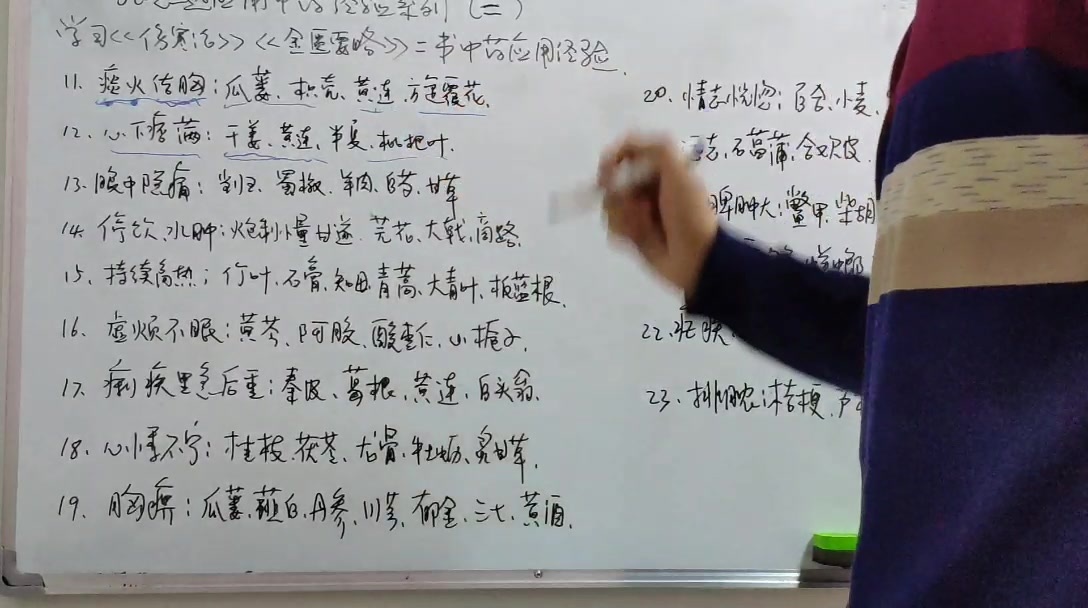 应用中药经验系列（二）
学习<<伤寒论>><<金匮要略>>二书中药应用经验.
11. 痰火结胸：瓜蒌、枳壳、黄连、旋覆花.
12. 心下痞满：干姜、黄连、半夏、枇杷叶.
13. 腹中隐痛：当归、蜀椒、羊肉、白芍、甘草
14. 停饮、水肿：炮制小量甘遂、芫花、大戟、商陆.
15. 持续高热：竹叶、石膏、知母、青蒿、大青叶、板蓝根.
16. 虚烦不眠：黄芩、阿胶、酸枣仁、山栀子.
17. 痢疾里急后重：秦皮、葛根、黄连、白头翁.
18. 心悸不宁：桂枝、茯苓、龙骨、牡蛎、炙甘草.
19. 胸痹：瓜蒌、薤白、丹参、川芎、郁金、三七、黄酒.
20. 情志恍惚：百合、小麦、
远志、石菖蒲、合欢皮.
脾肿大：鳖甲、柴胡
蜣螂
22.
23. 排脓：桔梗、